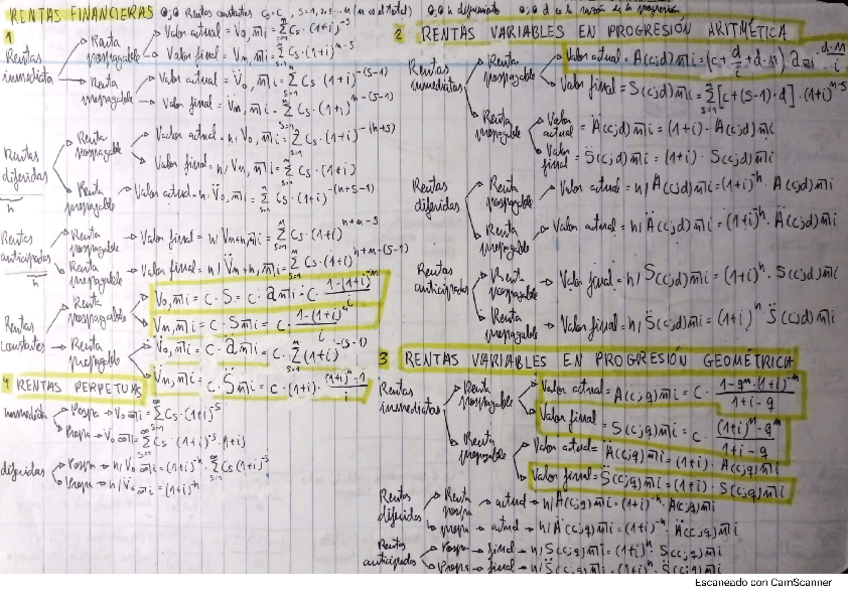 RENTAS FINANCIERAS
1
Rentas inmediata
Renta pospagable → Valor actual = V₀, m̅|i = Σ Cs·(1+i)^-s
Valor final = Vn, m̅|i = Σ Cs·(1+i)^n-s
Renta prepagable → Valor actual = V̈₀, m̅|i = Σ Cs·(1+i)^-(s-1)
Valor final = V̈n, m̅|i = Σ Cs·(1+i)^n-(s-1)
Rentas diferidas
h
Renta pospagable → Valor actual = h/V₀, m̅|i = Σ Cs·(1+i)^-(h+s)
Valor final = h/Vn, m̅|i = Σ Cs·(1+i)
Renta prepagable → Valor actual = h/V̈₀, m̅|i = Σ Cs·(1+i)^-(h+s-1)
Rentas anticipadas
h
Renta pospagable → Valor final = h/Vn+h, m̅|i = Σ Cs·(1+i)^h+n-s
Renta prepagable → Valor final = h/V̈n+h, m̅|i = Σ Cs·(1+i)^h+n-(s-1)
Rentas constantes
Renta pospagable
V₀, m̅|i = C·S = C·a m̅|i = C·(1-(1+i)^-n)/i
Vn, m̅|i = C·S m̅|i = C·(1-(1+i)^n)/i
Renta prepagable
V̈₀, m̅|i = C·ä m̅|i = C·Σ(1+i)^-(s-1)
V̈n, m̅|i = C·S̈ m̅|i = C·(1+i)·((1+i)^n-1)/i
4 RENTAS PERPETUAS
inmediata → Pospa → V₀ ∞̅|i = Σ Cs·(1+i)^-s
Prepa → V̈₀ ∞̅|i = Σ Cs·(1+i)^-s·(1+i)
diferidas → Pospa → h/V₀ ∞̅|i = (1+i)^-h·Σ Cs(1+i)^-s
Prepa → h/V̈₀ ∞̅|i = (1+i)^-h
2 RENTAS VARIABLES EN PROGRESIÓN ARITMÉTICA
Rentas inmediatas
Renta pospagable → Valor actual = A(c;d)m̅|i = (c + d/i + d·n)·a m̅|i - d·n/i
Valor final = S(c;d)m̅|i = Σ[c+(s-1)·d]·(1+i)^n-s
Renta prepagable → Valor actual = Ä(c;d)m̅|i = (1+i)·A(c;d)m̅|i
Valor final = S̈(c;d)m̅|i = (1+i)·S(c;d)m̅|i
Rentas diferidas
Renta pospagable → Valor actual = h/A(c;d)m̅|i = (1+i)^-h·A(c;d)m̅|i
Renta prepagable → Valor actual = h/Ä(c;d)m̅|i = (1+i)^-h·Ä(c;d)m̅|i
Rentas anticipadas
Renta pospagable → Valor final = h/S(c;d)m̅|i = (1+i)^h·S(c;d)m̅|i
Renta prepagable → Valor final = h/S̈(c;d)m̅|i = (1+i)^h·S̈(c;d)m̅|i
3 RENTAS VARIABLES EN PROGRESIÓN GEOMÉTRICA
Rentas inmediatas
Renta pospagable → Valor actual = A(c;q)m̅|i = C·(1-q^n·(1+i)^-n)/(1+i-q)
Valor final = S(c;q)m̅|i = C·((1+i)^n-q^n)/(1+i-q)
Renta prepagable → Valor actual = Ä(c;q)m̅|i = (1+i)·A(c;q)m̅|i
Valor final = S̈(c;q)m̅|i = (1+i)·S(c;q)m̅|i
Rentas diferidas → Renta pospa → actual → h/A(c;q)m̅|i = (1+i)^-h·A(c;q)m̅|i
prepa → actual → h/Ä(c;q)m̅|i = (1+i)^-h·Ä(c;q)m̅|i
Rentas anticipadas → Pospa → final → h/S(c;q)m̅|i = (1+i)^h·S(c;q)m̅|i
Prepa → final → h/S̈(c;q)m̅|i = (1+i)^h·S̈(c;q)m̅|i
Escaneado con CamScanner